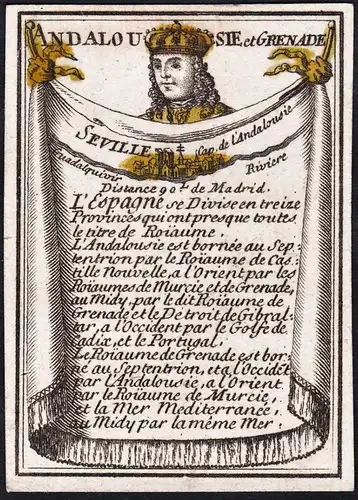 ANDALOUSIE et GRENADE
SEVILLE Cap. de l'Andalousie
Guadalquivir Riviere
Distance 90 l. de Madrid.
L'Espagne se Divise en treize
Provinces qui ont presque toutes
le titre de Roiaume.
L'Andalousie est bornée au Sep-
tentrion par le Roiaume de Cas-
tille Nouvelle, a l'Orient par les
Roiaumes de Murcie et de Grenade,
au Midy, par le dit Roiaume de
Grenade et le Detroit de Gibral-
tar, a l'Occident par le Golfe de
Cadix, et le Portugal.
Le Roiaume de Grenade est bor-
né au Septentrion, et a l'Occidet
par l'Andalousie, a l'Orient
par le Roiaume de Murcie,
et la Mer Mediterranée,
au Midy par la même Mer.